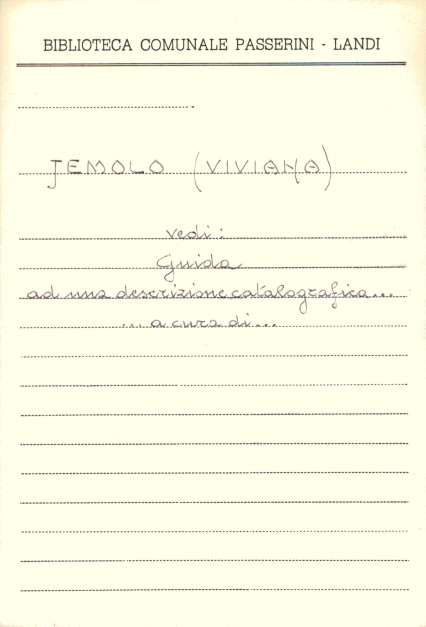 BIBLIOTECA COMUNALE PASSERINI - LANDI
JEMOLO (VIVIANA)
vedi:
Guida
ad una descrizione catalografica...
... a cura di...